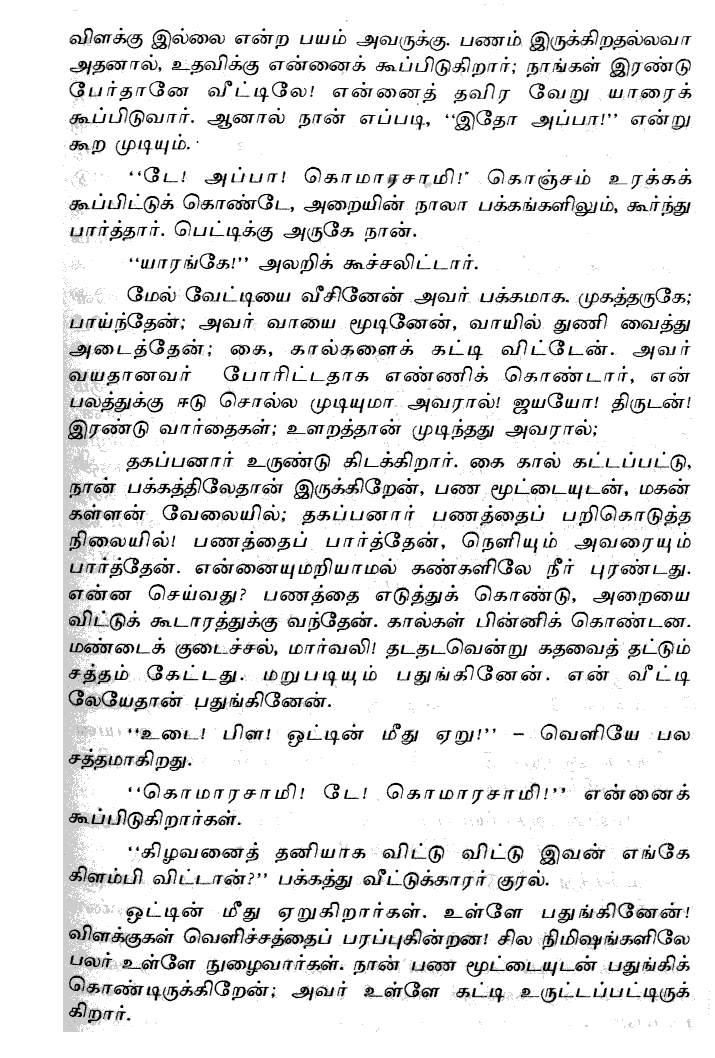 விளக்கு இல்லை என்ற பயம் அவருக்கு. பணம் இருக்கிறதல்லவா
அதனால், உதவிக்கு என்னைக் கூப்பிடுகிறார்; நாங்கள் இரண்டு
பேர்தானே வீட்டிலே! என்னைத் தவிர வேறு யாரைக்
கூப்பிடுவார். ஆனால் நான் எப்படி, ‘‘இதோ அப்பா!’’ என்று
கூற முடியும்.
‘‘டே! அப்பா! கொமாரசாமி!" கொஞ்சம் உரக்கக்
கூப்பிட்டுக் கொண்டே, அறையின் நாலா பக்கங்களிலும், கூர்ந்து
பார்த்தார். பெட்டிக்கு அருகே நான்.
‘‘யாரங்கே!’’ அலறிக் கூச்சலிட்டார்.
மேல் வேட்டியை வீசினேன் அவர் பக்கமாக. முகத்தருகே;
பாய்ந்தேன்; அவர் வாயை மூடினேன், வாயில் துணி வைத்து
அடைத்தேன்; கை, கால்களைக் கட்டி விட்டேன். அவர்
வயதானவர் போரிட்டதாக எண்ணிக் கொண்டார், என்
பலத்துக்கு ஈடு சொல்ல முடியுமா அவரால்! ஐயயோ! திருடன்!
இரண்டு வார்தைகள்; உளறத்தான் முடிந்தது அவரால்;
தகப்பனார் உருண்டு கிடக்கிறார். கை கால் கட்டப்பட்டு,
நான் பக்கத்திலேதான் இருக்கிறேன், பண மூட்டையுடன், மகன்
கள்ளன் வேலையில்; தகப்பனார் பணத்தைப் பறிகொடுத்த
நிலையில்! பணத்தைப் பார்த்தேன், நெளியும் அவரையும்
பார்த்தேன். என்னையுமறியாமல் கண்களிலே நீர் புரண்டது.
என்ன செய்வது? பணத்தை எடுத்துக் கொண்டு, அறையை
விட்டுக் கூடாரத்துக்கு வந்தேன். கால்கள் பின்னிக் கொண்டன.
மண்டைக் குடைச்சல், மார்வலி! தடதடவென்று கதவைத் தட்டும்
சத்தம் கேட்டது. மறுபடியும் பதுங்கினேன். என் வீட்டி
லேயேதான் பதுங்கினேன்.
‘‘உடை! பிள! ஓட்டின் மீது ஏறு!’’ – வெளியே பல
சத்தமாகிறது.
‘‘கொமாரசாமி! டே! கொமாரசாமி!’’ என்னைக்
கூப்பிடுகிறார்கள்.
‘‘கிழவனைத் தனியாக விட்டு விட்டு இவன் எங்கே
கிளம்பி விட்டான்?’’ பக்கத்து வீட்டுக்காரர் குரல்.
ஓட்டின் மீது ஏறுகிறார்கள். உள்ளே பதுங்கினேன்!
விளக்குகள் வெளிச்சத்தைப் பரப்புகின்றன! சில நிமிஷங்களிலே
பலர் உள்ளே நுழைவார்கள். நான் பண மூட்டையுடன் பதுங்கிக்
கொண்டிருக்கிறேன்; அவர் உள்ளே கட்டி உருட்டப்பட்டிருக்
கிறார்.